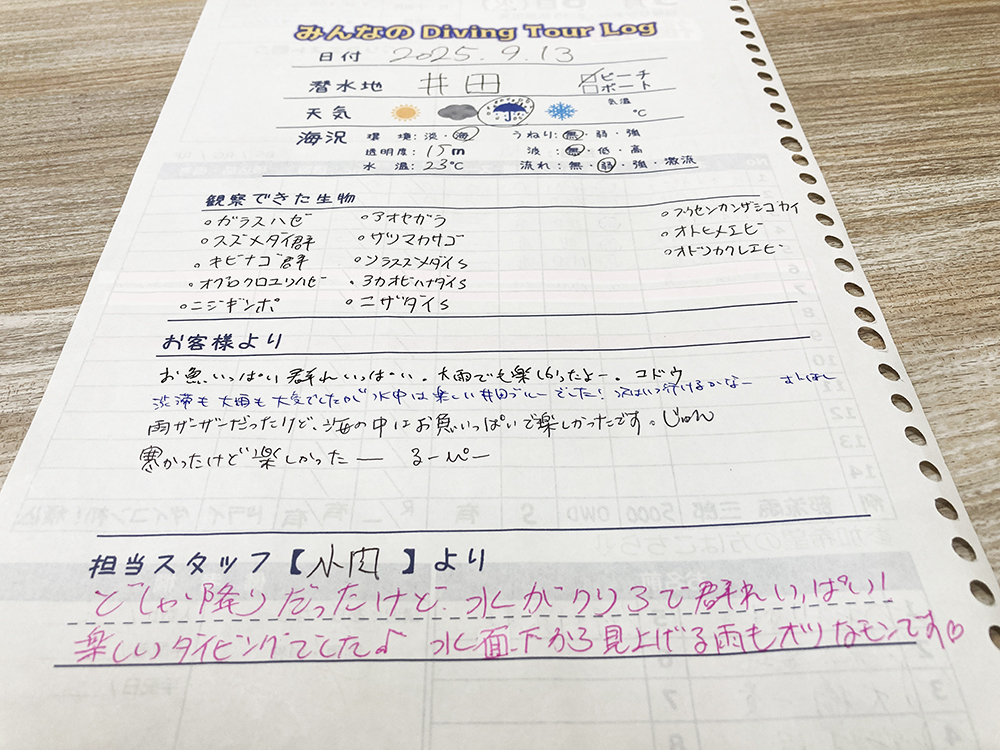 みんなの Diving Tour Log
日付 2025.9.13
潜水地 井田 ビーチ
ボート
天気 気温 ℃
海況 環境:淡・海 うねり:無・弱・強
透明度: 15m 波:無・低・高
水温: 23℃ 流れ:無・弱・強・激流
観察できた生物
。ガラスハゼ 。アオヤガラ 。フウセンカンザシゴカイ
。スズメダイ群 。サツマカサゴ 。オトヒメエビ
。キビナゴ群 。ソラスズメダイs 。オドリカクレエビ
。オグロクロユリハゼ 。ヨカオビハナダイs
。ニジギンポ 。ニザダイs
お客様より
お魚いっぱい群れいっぱい。大雨でも楽しかったよー。コドウ
渋滞も大雨も大気でしたが水中は楽しい井田ブルーでした!次はいつ行けるかなー
雨ザンザンだったけど、海の中はお魚いっぱいで楽しかったです。じゅん
寒かったけど楽しかったー るーぺー
担当スタッフ【小肉】より
どしゃ降りだったけど、水がクリアで群れいっぱい!
楽しいダイビングでした♪ 水面下から見上げる雨もオツなモンです♡